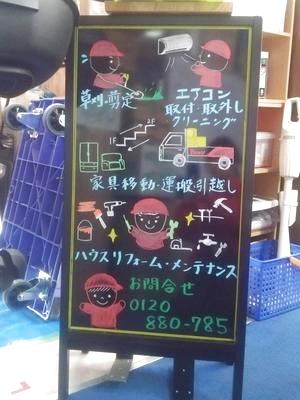 草刈・剪定
エアコン
取付・取外し
クリーニング
1F
2F
家具移動・運搬引越し
ハウスリフォーム・メンテナンス
お問合せ
0120
880-785